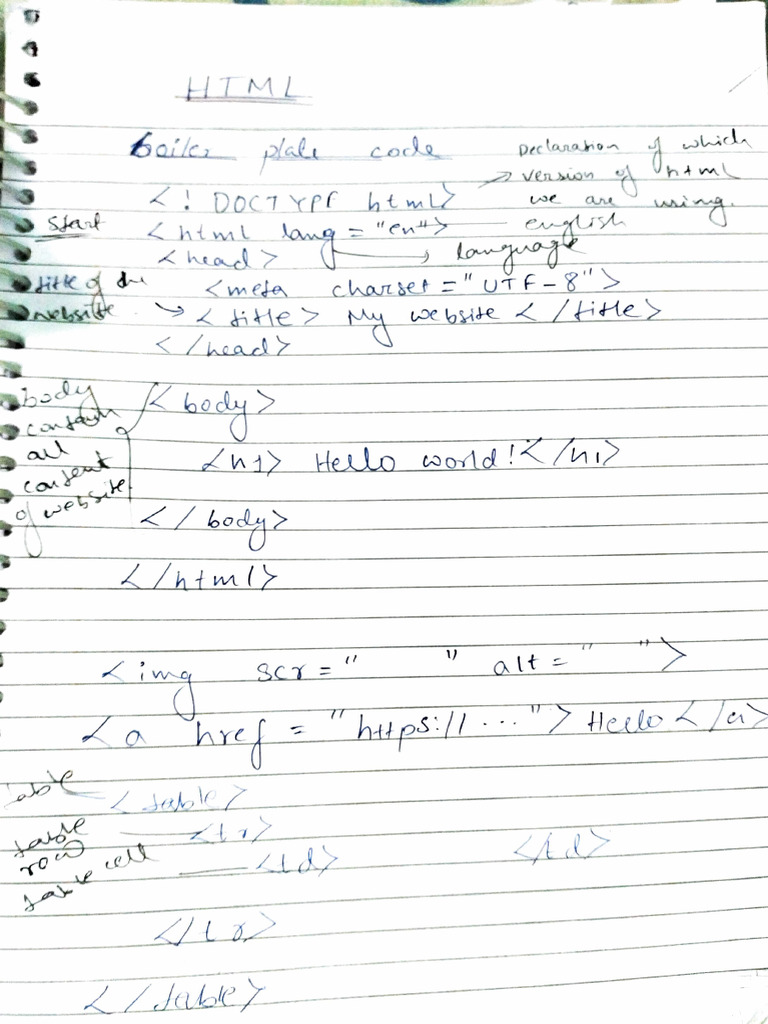 HTML
boiler plate code
Declaration of which
version of html
we are using.
<! DOCTYPE html>
Start
<html lang = "en"> english
<head> language
title of the
website
<meta charset = "UTF-8">
<title> My website </title>
</head>
body
contain
all
content
of website
<body>
<h1> Hello world! </h1>
</body>
</html>
<img scr = " " alt = " ">
<a href = "https://..."> Hello </a>
table <table>
table
row <tr>
table cell <td> </td>
</tr>
</table>